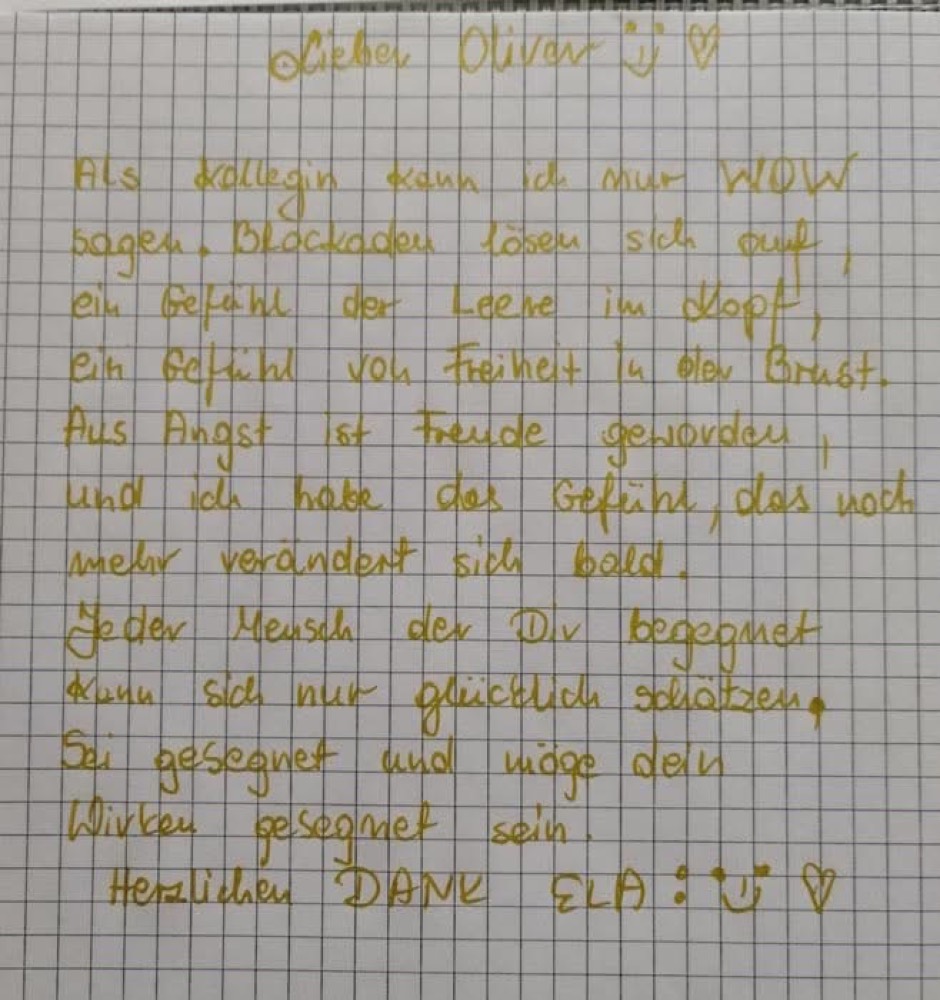 Lieber Oliver :) ♡
Als Kollegin kann ich nur WOW
sagen. Blockaden lösen sich auf,
ein Gefühl der Leere im Kopf,
ein Gefühl von Freiheit in der Brust.
Aus Angst ist Freude geworden,
und ich habe das Gefühl, das noch
mehr verändert sich bald.
Jeder Mensch der Dir begegnet
kann sich nur glücklich schätzen.
Sei gesegnet und möge dein
Wirken gesegnet sein.
Herzlichen DANK ELA : :) ♡